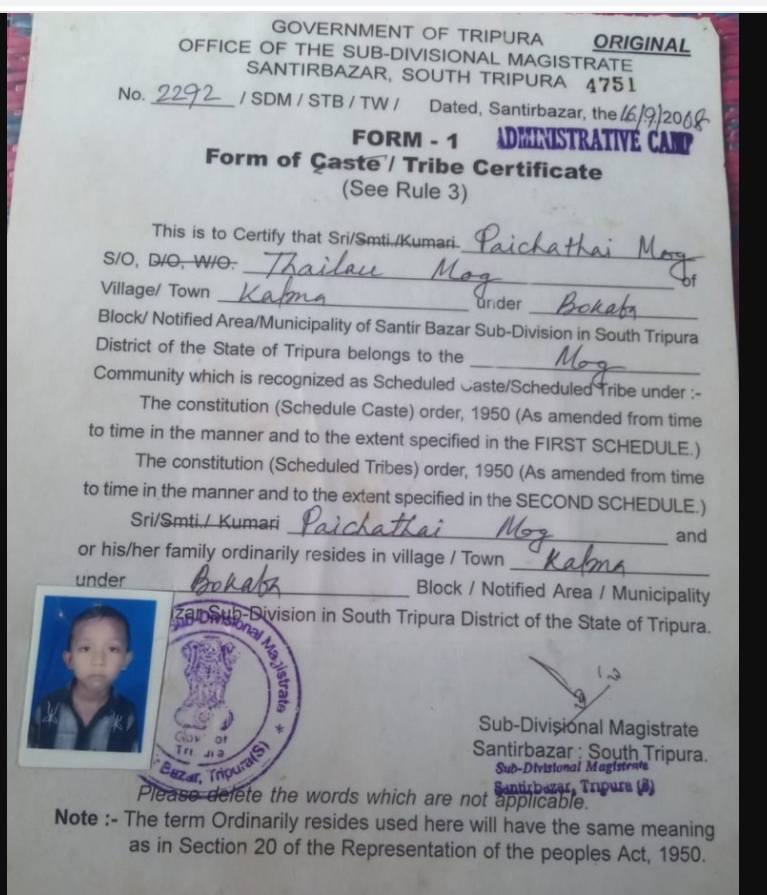 GOVERNMENT OF TRIPURA
ORIGINAL
OFFICE OF THE SUB-DIVISIONAL MAGISTRATE
SANTIRBAZAR, SOUTH TRIPURA 4751
No. 2292 / SDM / STB / TW / Dated, Santirbazar, the 16/9/2008
FORM - 1 ADMINISTRATIVE CAMP
Form of Caste / Tribe Certificate
(See Rule 3)
This is to Certify that Sri/Smti./Kumari. Paichathai Mog
S/O, D/O, W/O. Thailau Mog of
Village/ Town Kalma under Bokafa
Block/ Notified Area/Municipality of Santir Bazar Sub-Division in South Tripura
District of the State of Tripura belongs to the Mog
Community which is recognized as Scheduled Caste/Scheduled Tribe under :-
The constitution (Schedule Caste) order, 1950 (As amended from time
to time in the manner and to the extent specified in the FIRST SCHEDULE.)
The constitution (Scheduled Tribes) order, 1950 (As amended from time
to time in the manner and to the extent specified in the SECOND SCHEDULE.)
Sri/Smti./ Kumari Paichathai Mog and
or his/her family ordinarily resides in village / Town Kalma
under Bokafa Block / Notified Area / Municipality
zar Sub-Division in South Tripura District of the State of Tripura.
Sub-Divisional Magistrate *
Gov of
Tri ura
Bazar, Tripura(S)
Sub-Divisional Magistrate
Santirbazar : South Tripura.
Sub-Divisional Magistrate
Santirbazar, Tripura (S)
Please delete the words which are not applicable.
Note :- The term Ordinarily resides used here will have the same meaning
as in Section 20 of the Representation of the peoples Act, 1950.